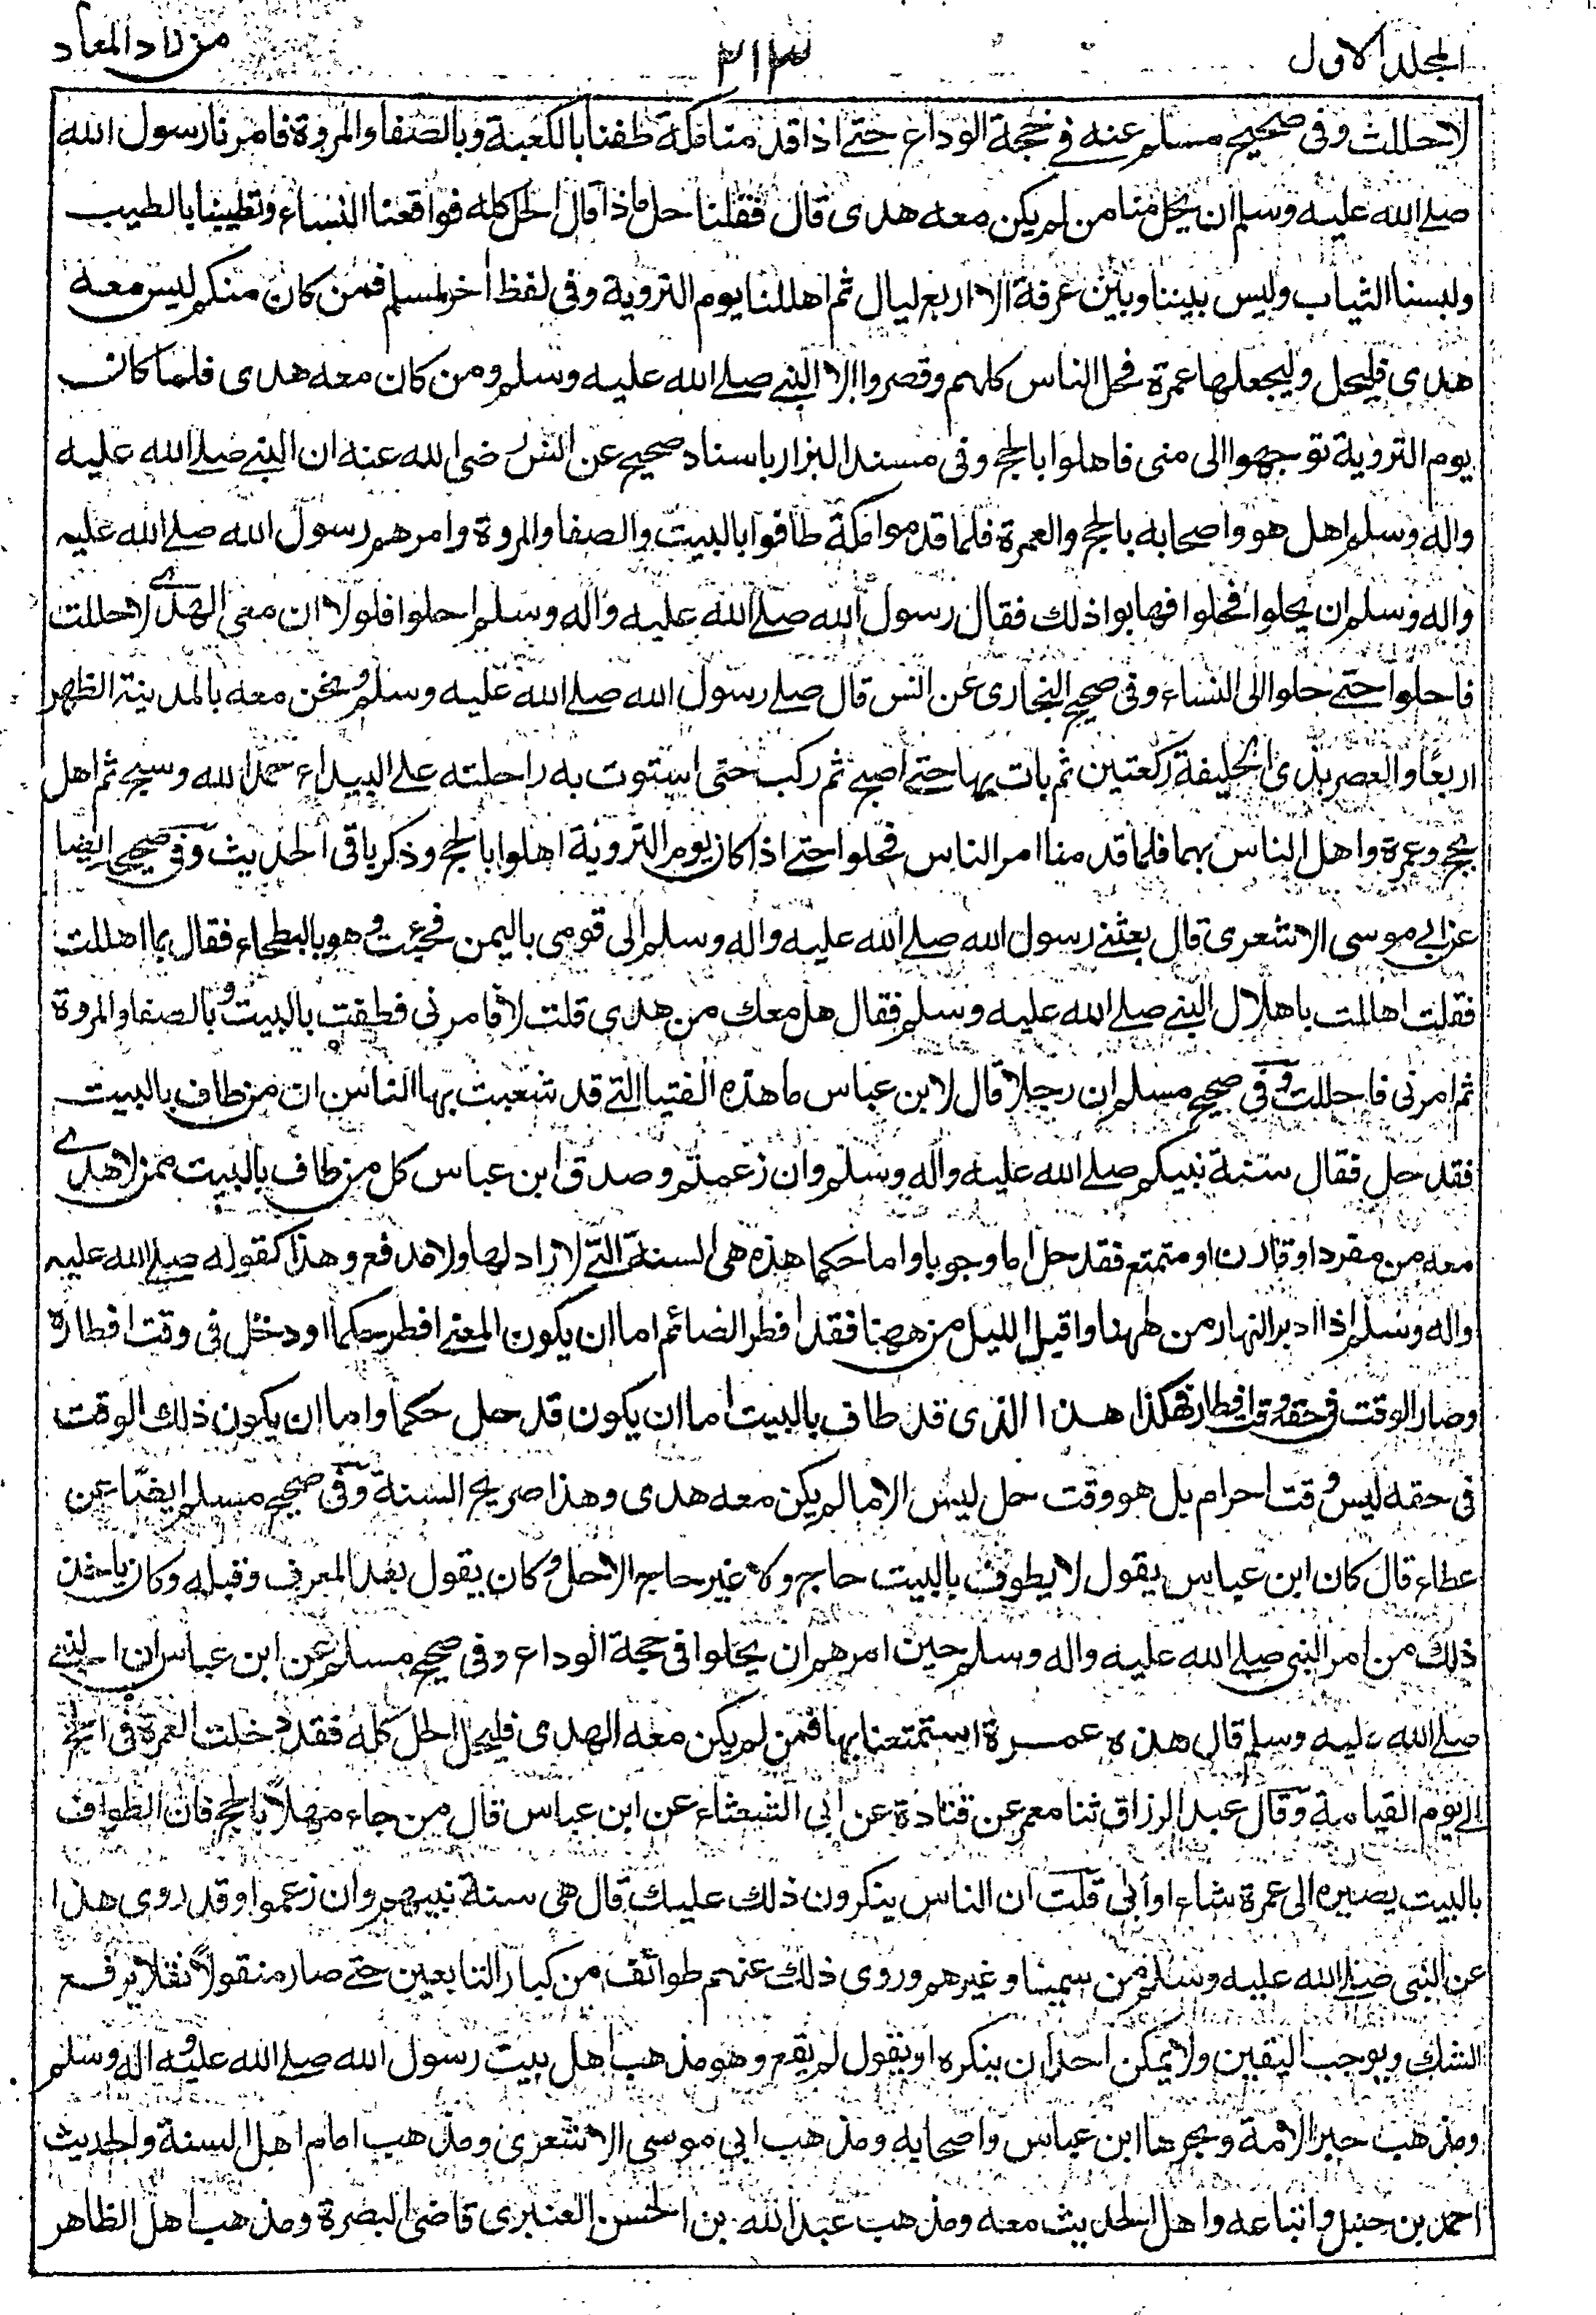 المجلد الاول ٢١٣ من زاد المعاد
لاحللت وفى صحيح مسلم عنه فى حجة الوداع حتى اذا قدمنا مكة طفنا بالكعبة وبالصفا والمروة فامرنا رسول الله
صلى الله عليه وسلم ان يحل منا من لم يكن معه هدى قال فقلنا حل ماذا قال الحل كله فواقعنا النساء وتطيبنا بالطيب
ولبسنا الثياب وليس بيننا وبين عرفة الا اربع ليال ثم اهللنا يوم التروية وفى لفظ أخر لمسلم فمن كان منكم ليس معه
هدى فليحل وليجعلها عمرة فحل الناس كلهم وقصروا الا النبى صلى الله عليه وسلم ومن كان معه هدى فلما كان
يوم التروية توجهوا الى منى فاهلوا بالحج وفى مسند البزار باسناد صحيح عن انس رضى الله عنه ان النبى صلى الله عليه
واله وسلم اهل هو واصحابه بالحج والعمرة فلما قدموا مكة طافوا بالبيت والصفا والمروة وامرهم رسول الله صلى الله عليه
واله وسلم ان يحلوا فحلوا فهابوا ذلك فقال رسول الله صلى الله عليه واله وسلم احلوا فلولا ان معى الهدى لاحللت
فاحلوا حتى حلوا الى النساء وفى صحيح البخارى عن انس قال صلى رسول الله صلى الله عليه وسلم ونحن معه بالمدينة الظهر
اربعا والعصر بذى الحليفة ركعتين ثم بات بها حتى اصبح ثم ركب حتى استوت به راحلته على البيداء حمد الله وسبح ثم اهل
بحج وعمرة واهل الناس بهما فلما قدمنا امر الناس فحلوا حتى اذا كان يوم التروية اهلوا بالحج وذكر باقى الحديث وفى صحيحه ايضا
عن ابى موسى الاشعرى قال بعثنى رسول الله صلى الله عليه واله وسلم الى قومى باليمن فجئت وهو بالبطحاء فقال بما اهللت
فقلت اهللت باهلال النبى صلى الله عليه وسلم فقال هل معك من هدى قلت لا فامرنى فطفت بالبيت وبالصفا والمروة
ثم امرنى فاحللت وفى صحيح مسلم ان رجلا قال لابن عباس ما هذه الفتيا التى قد تشعبت بها الناس ان من طاف بالبيت
فقد حل فقال سنة نبيكم صلى الله عليه واله وسلم وان زعمتم وصدق ابن عباس كل من طاف بالبيت ممن لا هدى
معه من مفرد او قارن او متمتع فقد حل اما وجوبا واما حكما هذه هى السنة التى لا راد لها ولا مدفع وهذا كقوله صلى الله عليه
واله وسلم اذا ادبر النهار من ههنا واقبل الليل من ههنا فقد افطر الصائم اما ان يكون المعنى افطر حكما او دخل فى وقت افطاره
وصار الوقت فى حقه وقت افطار فهكذا هذا الذى قد طاف بالبيت اما ان يكون قد حل حكما واما ان يكون ذلك الوقت
فى حقه ليس وقت احرام بل هو وقت حل ليس الا ما لم يكن معه هدى وهذا صريح السنة وفى صحيح مسلم ايضا عن
عطاء قال كان ابن عباس يقول لا يطوف بالبيت حاج ولا غير حاج الا حل وكان يقول بعد المعرف وقبله وكان ياخذ
ذلك من امر النبى صلى الله عليه واله وسلم حين امرهم ان يحلوا فى حجة الوداع وفى صحيح مسلم عن ابن عباس ان النبى
صلى الله عليه وسلم قال هذه عمرة استمتعنا بها فمن لم يكن معه الهدى فليحل الحل كله فقد دخلت العمرة فى الحج
الى يوم القيامة وقال عبد الرزاق ثنا معمر عن قتادة عن ابى الشعثاء عن ابن عباس قال من جاء مهلا بالحج فان الطواف
بالبيت يصيره الى عمرة شاء او أبى قلت ان الناس ينكرون ذلك عليك قال هى سنة نبيهم وان زعموا وقد روى هذا
عن النبى صلى الله عليه وسلم من سمينا وغيرهم وروى ذلك عنهم طوائف من كبار التابعين حتى صار منقولا نقلا يرفع
الشك ويوجب اليقين ولا يمكن احدا ان ينكره او يقول لم يقع وهو مذهب اهل بيت رسول الله صلى الله عليه واله وسلم
ومذهب حبر الامة وبحرها ابن عباس واصحابه ومذهب ابى موسى الاشعرى ومذهب امام اهل السنة والحديث
احمد بن حنبل واتباعه واهل الحديث معه ومذهب عبد الله بن الحسن العنبرى قاضى البصرة ومذهب اهل الظاهر